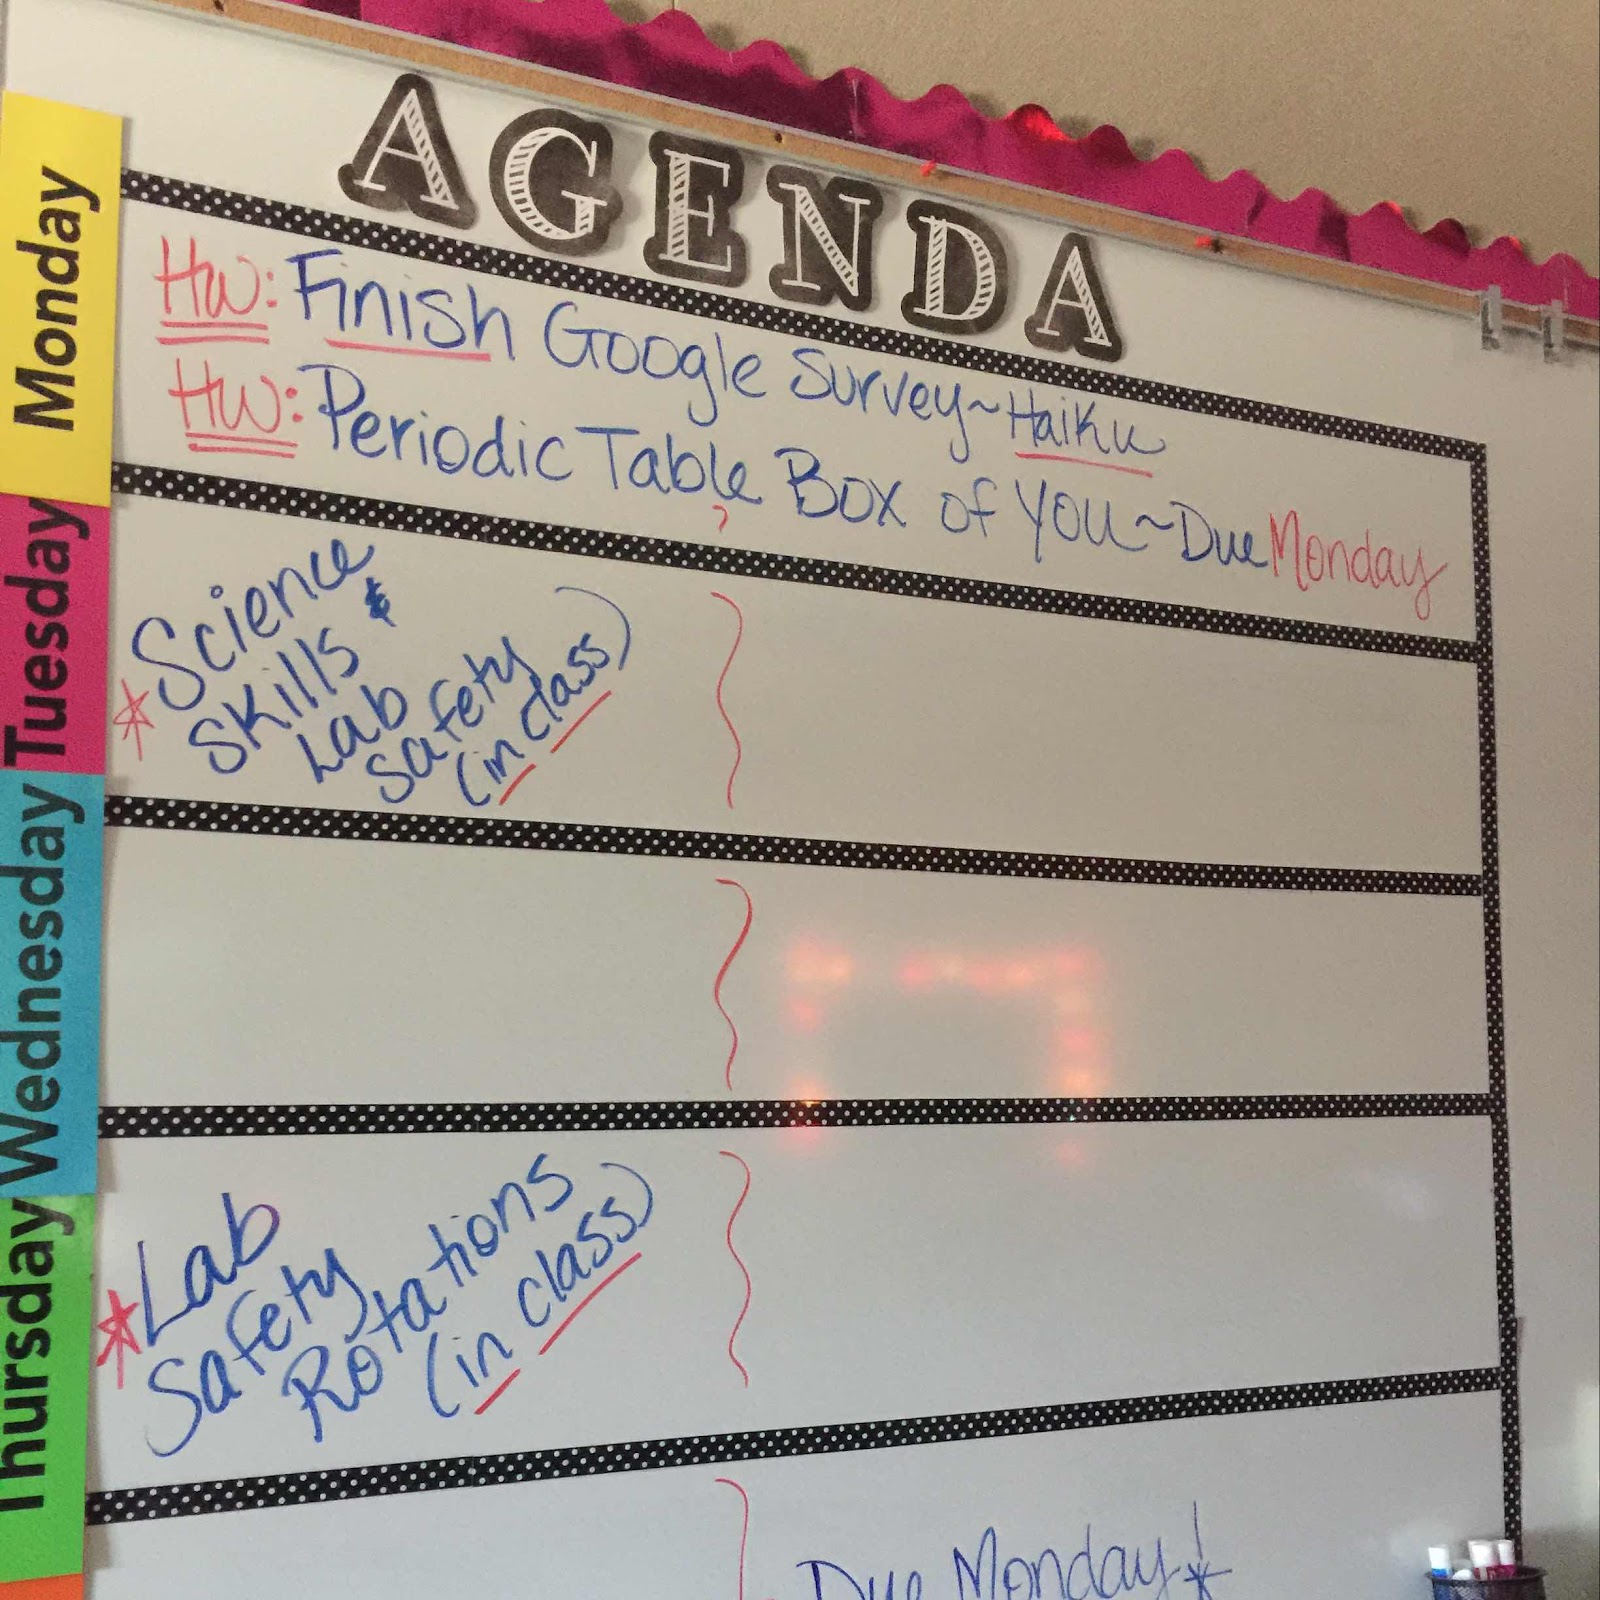 AGENDA
Monday
HW: Finish Google Survey~Haiku
HW: Periodic Table Box of YOU~Due Monday
Tuesday
*Science
Skills &
Lab
Safety
(in class)
Wednesday
Thursday
*Lab
Safety
Rotations
(in class)
Due Monday!